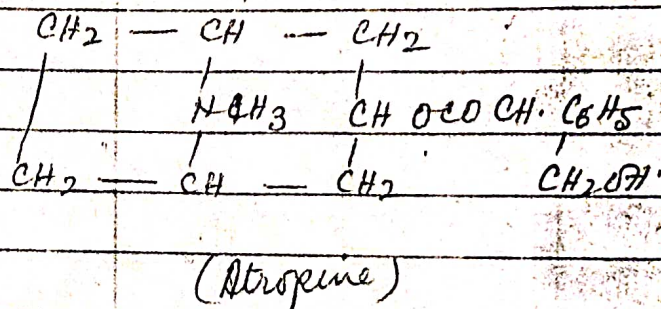 CH2 — CH — CH2
NCH3 CH OCO CH· C6H5
CH2 — CH — CH2 CH2OH·
(Atropine)